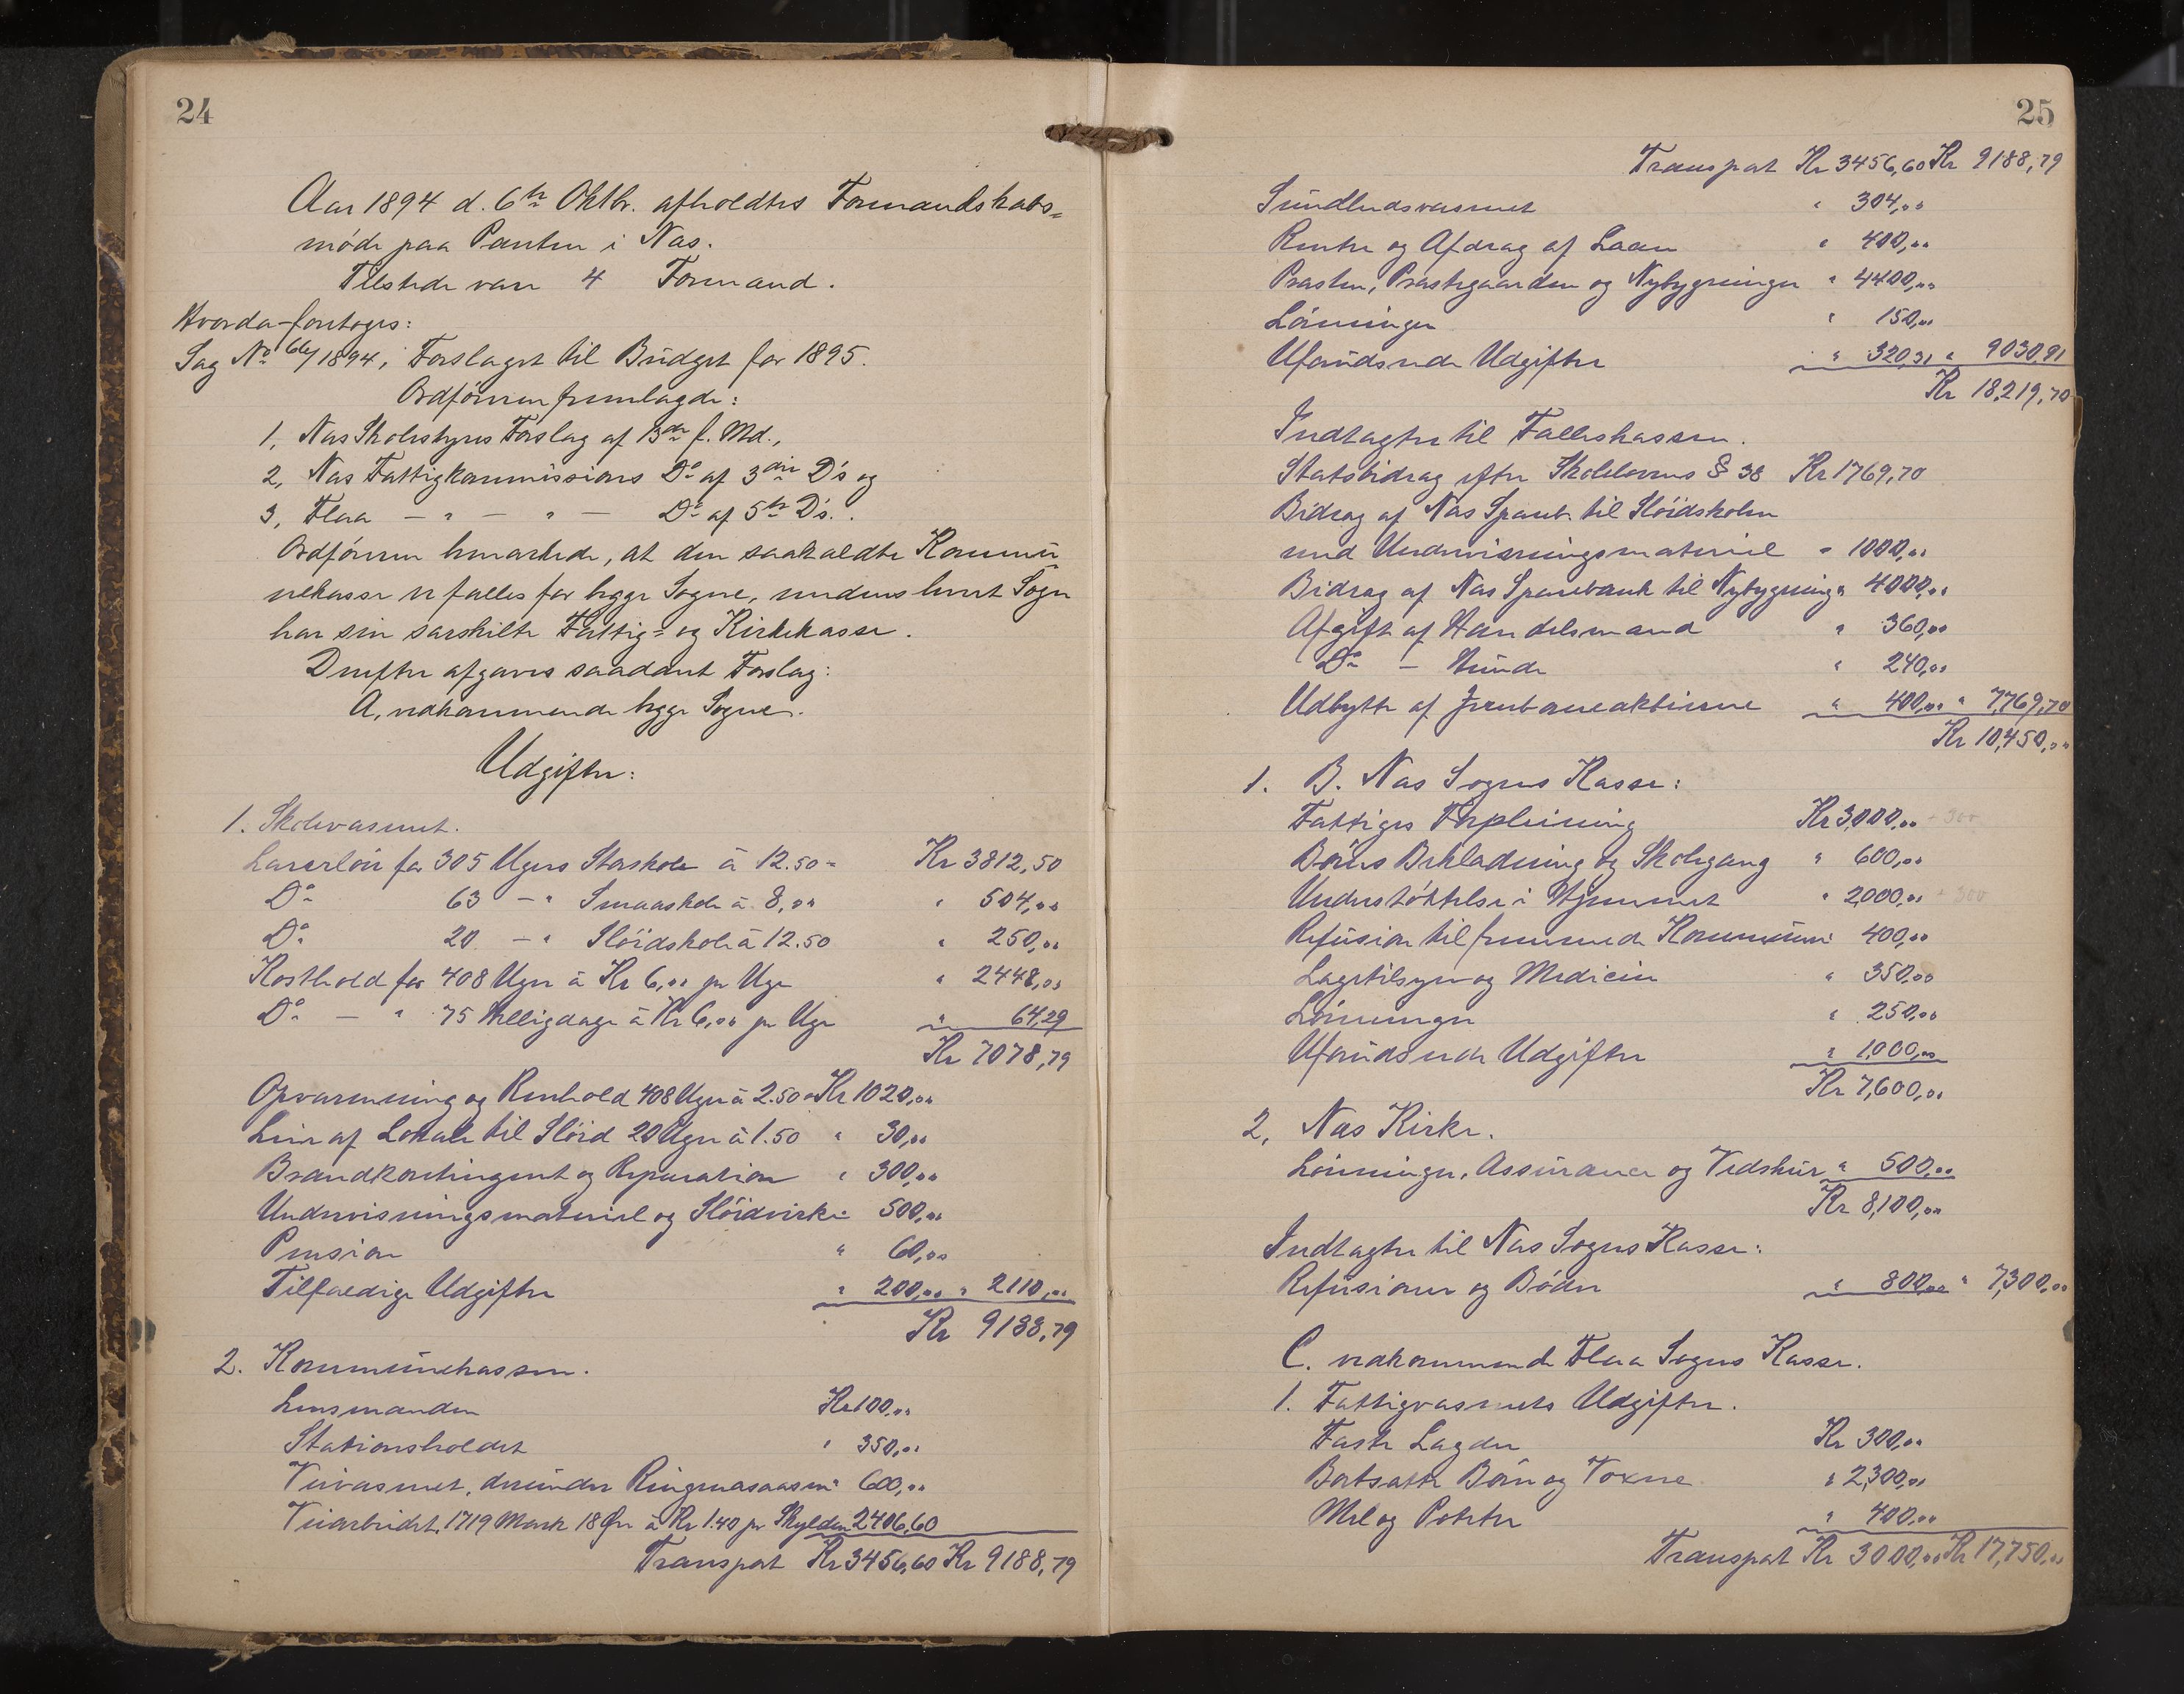 24
Aar 1894 d. 6te Oktbr. afholdtes Formandskabs-
møde paa Panten i Næs.
Tilstede vare 4 Formænd.
Hvorda foretoges:
Sag No 66/1894, Forslaget til Budget for 1895.
Ordføreren fremlagde:
1, Næs Skolestyres Forslag af 13de f. Md.,
2, Næs Fattigkommissions Do af 3die Ds og
3, Flaa — " — " — Do af 5te Ds.
Ordføreren bemærkede, at den saakaldte Kommu-
nekasse er fælles for begge Sogne, medens hvert Sogn
har sin særskilte Fattig- og Kirkekasse.
Derefter afgaves saadant Forslag:
A, vedkommende begge Sogne.
Udgifter:
1. Skolevæsenet.
Lærerløn for 305 Ugers Storskole à 12.50 = Kr 3812,50
Do 63 — " Smaaskole à 8,00 " 504,00
Do 20 — " Sløidskole à 12.50 " 250,00
Kosthold for 408 Uger à Kr 6,00 pr Uge " 2448,00
Do — " 75 Helligdage à Kr 6,00 pr Uge " 64,29
Kr 7078,79
Opvarmning og Renhold 408 Uger à 2.50 Kr 1020,00
Leie af Lokale til Sløid 20 Uger à 1.50 " 30,00
Brandkontingent og Reparation " 300,00
Undervisningsmateriel og Sløidvirke " 500,00
Pension " 60,00
Tilfældige Udgifter " 200,00 " 2110,00
Kr 9188,79
2. Kommunekassen.
Lensmanden Kr 100,00
Stationsholdet " 350,00
Veivæsenet, derunder Ringnesaasen " 600,00
Veiarbeidet, 1719 Mark 18 Øre à Kr 1.40 pr Skyldm 2406,60
Transport Kr 3456,60 Kr 9188,79
25
Transport Kr 3456,60 Kr 9188,79
Sundhedsvæsenet " 304,00
Renter og Afdrag af Laan " 400,00
Præsten, Præstegaarden og Nybygninger " 4400,00
Lønninger " 150,00
Uforudseede Udgifter " 320,31 " 9030,91
Kr 18,219,70
Indtægter til Fælleskassen.
Statsbidrag efter Skolelovens § 38 Kr 1769,70
Bidrag af Næs Spareb. til Sløidskolen
med Undervisningsmateriel " 1000,00
Bidrag af Næs Sparebank til Nybygning " 4000,00
Afgift af Handelsmænd " 360,00
Do — Hunde " 240,00
Udbytte af Jernbaneaktierne " 400,00 " 7,769,70
Kr 10,450,00
1. B. Næs Sogns Kasse:
Fattiges Forpleining Kr 3,000,00 + 300
Børns Beklædning og Skolegang " 600,00
Understøttelse i Hjemmet " 2,000,00 + 300
Refusion til fremmede Kommuner 400,00
Lægetilsyn og Medicin " 350,00
Lønninger " 250,00
Uforudseede Udgifter " 1,000,00
Kr 7,600,00
2, Næs Kirke.
Lønninger, Assurance og Vedskur " 500,00
Kr 8,100,00
Indtægter til Næs Sogns Kasse:
Refusioner og Bøder " 800,00 " 7,300,00
C. vedkommende Flaa Sogns Kasse.
1. Fattigvæsenets Udgifter.
Faste Lægder Kr 300,00
Bortsatte Børn og Voxne " 2,300,00
Mel og Poteter " 400,00
Transport Kr 3000,00 Kr 17,750,00